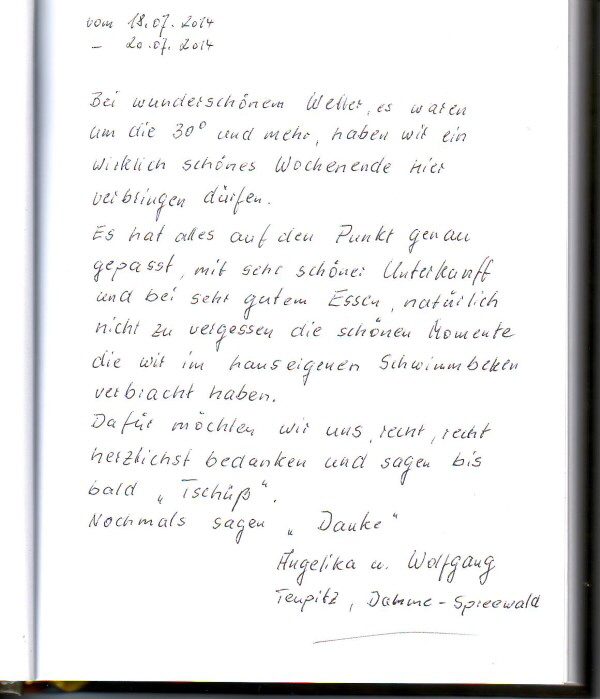 vom 18.07.2014
– 20.07.2014
Bei wunderschönem Wetter, es waren
um die 30° und mehr, haben wir ein
wirklich schönes Wochenende hier
verbringen dürfen.
Es hat alles auf den Punkt genau
gepasst, mit sehr schöner Unterkunft
und bei sehr gutem Essen, natürlich
nicht zu vergessen die schönen Momente
die wir im hauseigenen Schwimmbeken
verbracht haben.
Dafür möchten wir uns, recht, recht
herzlichst bedanken und sagen bis
bald „Tschüß“.
Nochmals sagen „Danke“
Angelika u. Wolfgang
Teupitz, Dahme-Spreewald